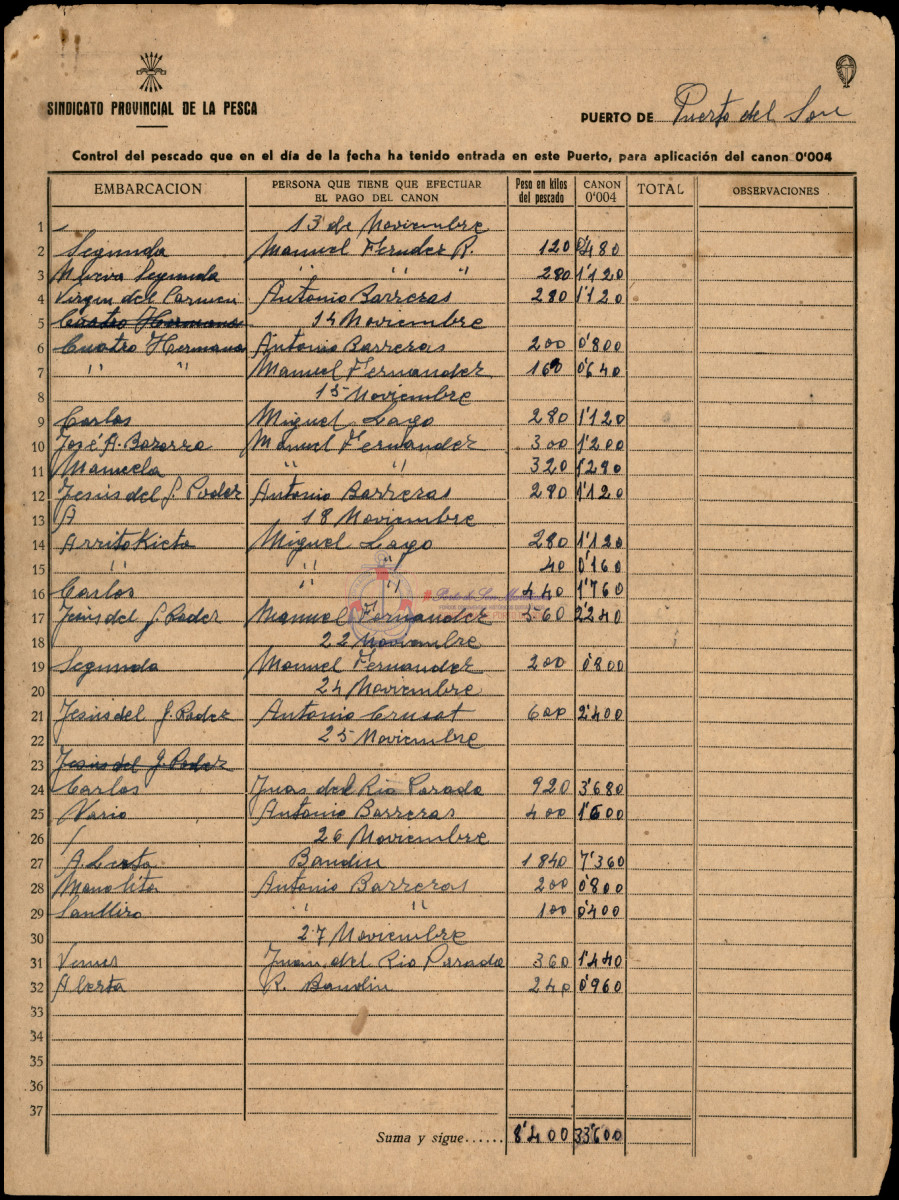 SINDICATO PROVINCIAL DE LA PESCA
PUERTO DE Puerto del Son
Control del pescado que en el día de la fecha ha tenido entrada en este Puerto, para aplicación del canon 0'004
EMBARCACION PERSONA QUE TIENE QUE EFECTUAR EL PAGO DEL CANON Peso en kilos del pescado CANON 0'004 TOTAL OBSERVACIONES
1 13 de Noviembre
2 Segunda Manuel Ferndez R. 120 0'480
3 Nueva Segunda " " " 280 1'120
4 Virgen del Carmen Antonio Barreras 280 1'120
5 Cuatro Hermanos 14 Noviembre
6 Cuatro Hermanos Antonio Barreras 200 0'800
7 " " Manuel Fernandez 160 0'640
8 15 Noviembre
9 Carlos Miguel Lago 280 1'120
10 José A. Bazarra Manuel Fernandez 300 1'200
11 Manuela " " 320 1'280
12 Jesús del G. Poder Antonio Barreras 280 1'120
13 A 18 Noviembre
14 Arritokieta Miguel Lago 280 1'120
15 " " " 40 0'160
16 Carlos " " 440 1'760
17 Jesús del G. Poder Manuel Fernandez 560 2'240
18 22 Noviembre
19 Segunda Manuel Fernandez 200 0'800
20 24 Noviembre
21 Jesús del G. Poder Antonio Crusat 600 2'400
22 25 Noviembre
23 Jesús del G. Poder
24 Carlos Juas del Rio Parada 920 3'680
25 Vario Antonio Barreras 400 1'600
26 26 Noviembre
27 Bandin 1840 7'360
28 Manolita Antonio Barreras 200 0'800
29 " " 100 0'400
30 27 Noviembre
31 Venus Juan del Rio Parada 360 1'440
32 Alerta R. Bandin 240 0'960
33
34
35
36
37
Suma y sigue...... 8'400 33'600